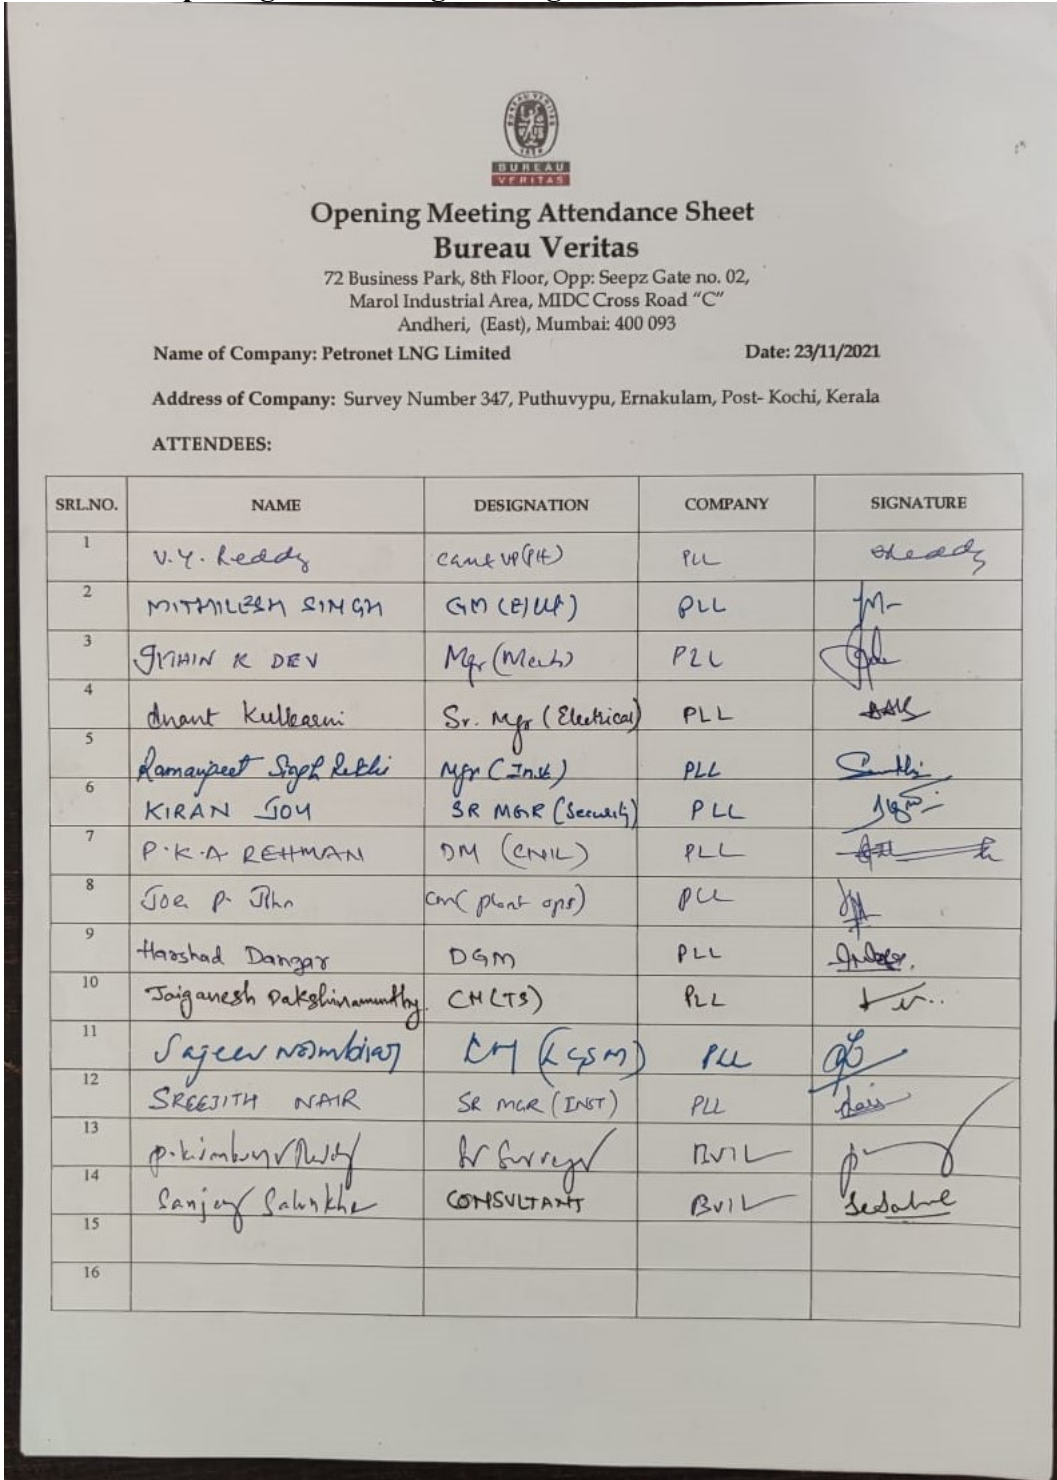 BUREAU VERITAS
1828
BUREAU
VERITAS
Opening Meeting Attendance Sheet
Bureau Veritas
72 Business Park, 8th Floor, Opp: Seepz Gate no. 02,
Marol Industrial Area, MIDC Cross Road "C"
Andheri, (East), Mumbai: 400 093
Name of Company: Petronet LNG Limited Date: 23/11/2021
Address of Company: Survey Number 347, Puthuvypu, Ernakulam, Post- Kochi, Kerala
ATTENDEES:
SRL.NO. NAME DESIGNATION COMPANY SIGNATURE
1 V.Y. Reddy PLL
2 MITHILESH SINGH GM PLL
3 K DEV Mgr (Mech) PLL
4 Anant Kulkarni Sr. Mgr (Electrical) PLL
5 Ramanpreet Singh Rekhi Mgr (Inst) PLL
6 KIRAN JOY SR MGR (Security) PLL
7 P.K.A REHMAN DM (CIVIL) PLL
8 Joe P. John CM (plant ops) PLL
9 Harshad Dangar DGM PLL
10 Jaiganesh Dakshinamurthy CM (TS) PLL
11 Sajeev Nambiar CM PLL
12 SREEJITH NAIR SR MGR (INST) PLL Nair
13 Reddy Sr Surveyor BVIL
14 Sanjay Salunkhe CONSULTANT BVIL
15
16